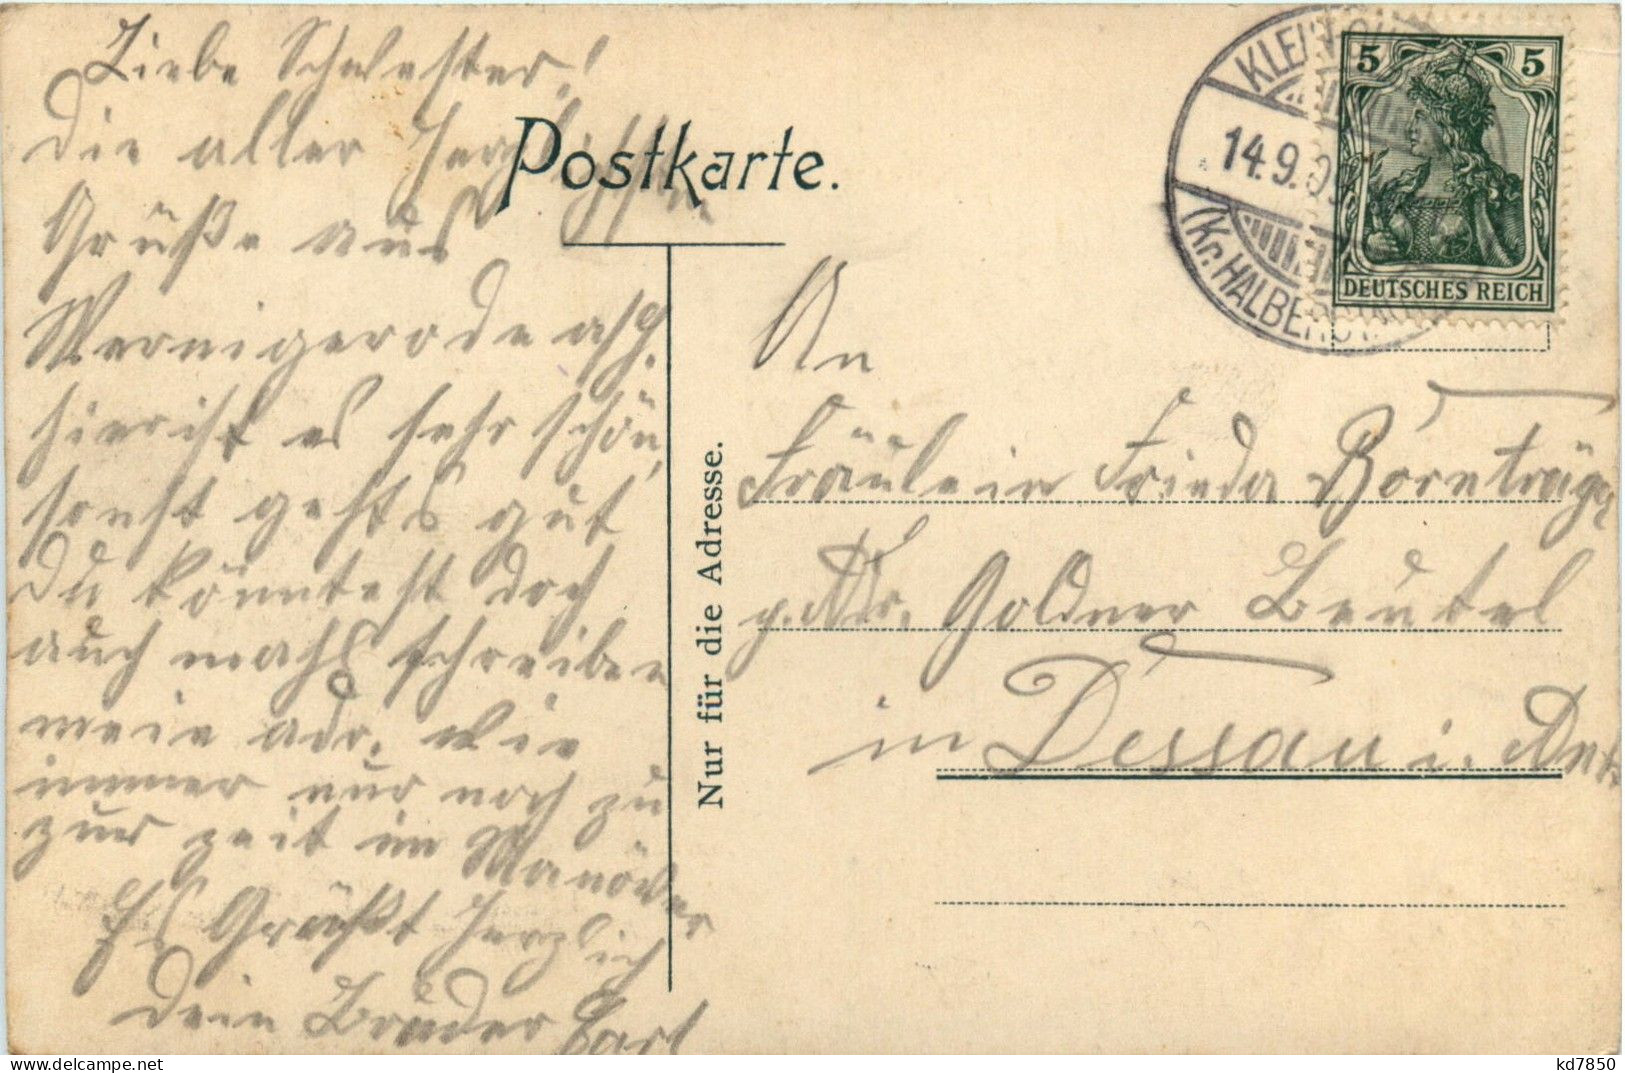 Liebe Schwester!
Die aller herzlichsten
Grüße aus
Wernigerode a/H.
hier ist es sehr schön,
sonst gehts gut
Du könntest doch
auch mahl schreiben
mein adr. wie
immer nur noch zu
zur zeit im Manöwer
Es Grüßt herzlich
dein Bruder Carl
Postkarte.
Nur für die Adresse.
KLEIN
14.9.0
(Kr. HALBERST
5 5
DEUTSCHES REICH
An
Fräulein Frieda Bornträger
Goldner Beutel
in Dessau i. Anh.
kd7850